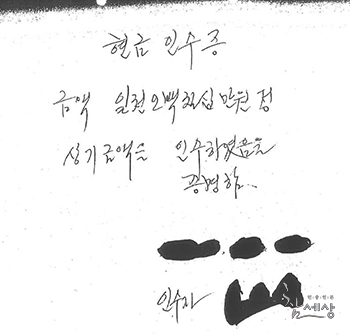 현금 인수증
금액 일천오백칠십만원정
상기금액을 인수하였음을
증명함.
인수자
참세상